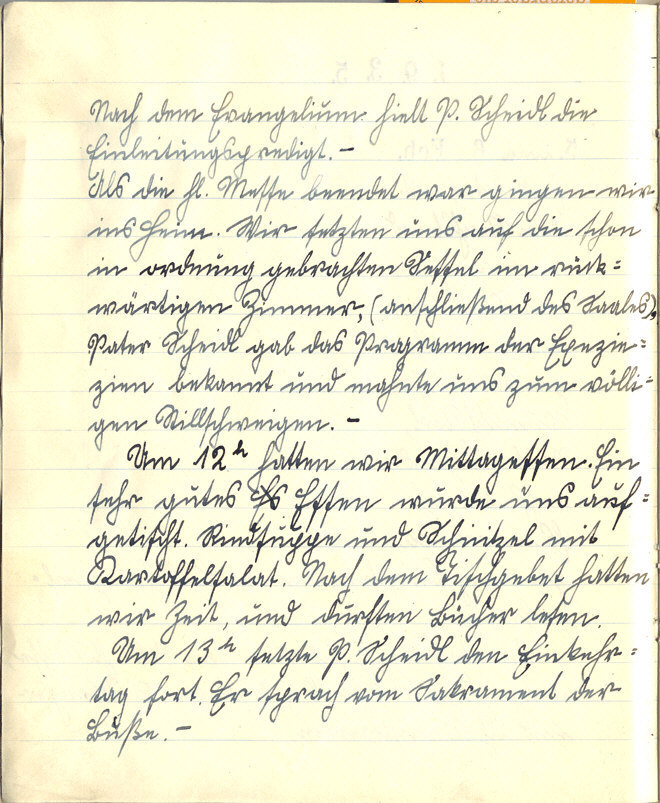 Nach dem Evangelium hielt P. Scheidl die
Einleitungspredigt. –
Als die hl. Messe beendet war gingen wir
ins Heim. Wir setzten uns auf die schon
in ordnung gebrachten Sessel im rück=
wärtigen Zimmer, (anschließend des Saales).
Pater Scheidl gab das Programm der Exezie=
zien bekannt und mahnte uns zum völli=
gen Stillschweigen. –
Um 12 h hatten wir Mittagessen. Ein
sehr gutes Essen wurde uns auf=
getischt. Rindsuppe und Schnitzel mit
Kartoffelsalat. Nach dem Tischgebet hatten
wir Zeit, und durften Bücher lesen.
Um 13 h setzte P. Scheidl den Einkehr=
tag fort. Er sprach vom Sakrament der
Buße. –